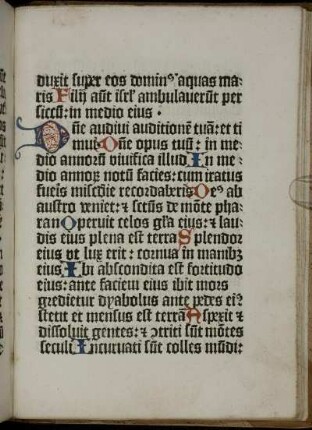 duxit super eos dominꝰ aquas ma-
ris Filij aūt isrl' ambulauerūt per
siccū: in medio eius ·
Dñe audiui auditionē tuā: et ti
mui One opus tuū: in me-
dio annorū viuifica illud In me-
dio annoꝝ notū facies: cum iratus
fueīs misc̄die recordaberis Oeꝰ ab
austro veniet: ⁊ sctūs de mōte pha-
ran Operuit celos glīa eius: ⁊ lau-
dis eius plena est terra Splendor
eius vt lux erit: cornua in manibꝫ
eius Ibi abscondita est fortitudo
eius: ante faciem eius ibit mors
gredietur dyabolus ante pedes eiꝰ
stetit et mensus est terrā Aspexit ⁊
dissoluit gentes: ⁊ ↄtriti sūt mōtes
seculi Incuruati sūt colles mūdi: